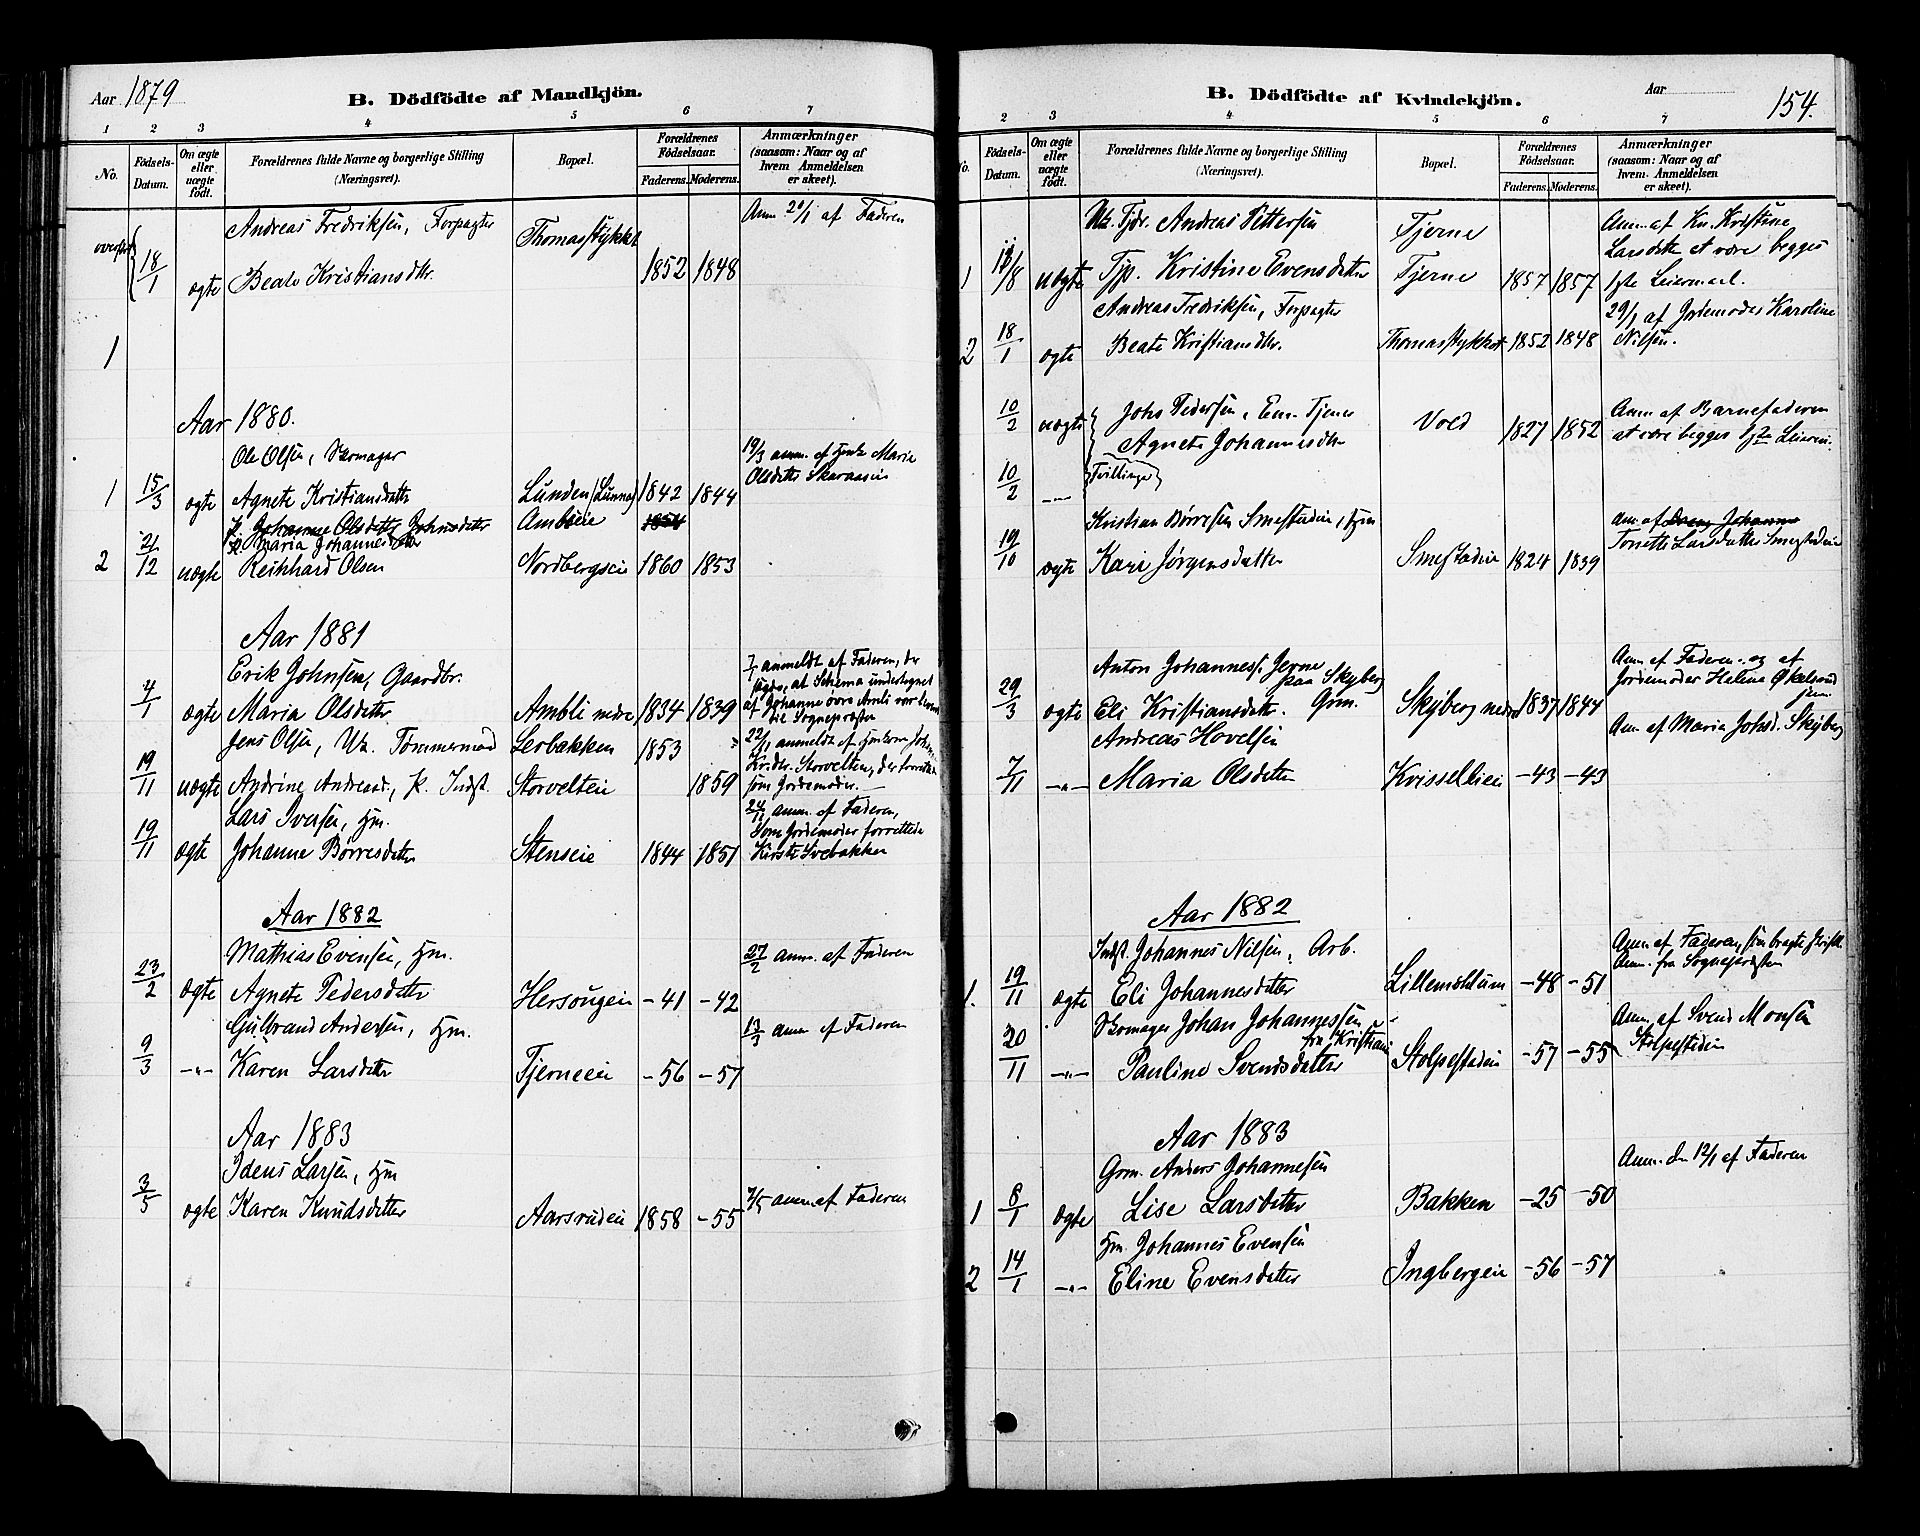 Aar 1879
B. Dödfödte af Mandkjön.
1 2 3 4 5 6 7
No.
Födsels-Datum.
Om ægte eller uægte födt.
Forældrenes fulde Navne og borgerlige Stilling (Næringsvei).
Bopæl.
Forældrenes Födselsaar.
Faderens. Moderens.
Anmærkninger (saasom: Naar og af hvem Anmeldelsen er skeet).
Andreas Fredriksen, Forpagter Thomasstykket Anm. 20/1 af Faderen
18/1 ægte Beate Kristiansdtr. 1852 1848
1
Aar 1880.
Ole Olsen, Skomager 19/3 anm. af Marie
1 15/3 ægte Agnete Kristiansdatter Lunden (Lunna) 1842 1844 Olsdatter
Johanne Olsdatter Johnsdatter 1854
Maria Johannesdtr
2 21/12 uægte Reinhard Olsen Nordbergseie 1860 1853
Aar 1881
Erik Johnsen, Gaardbr. 7/1 anmeldt af Faderen, der
4/1 ægte Maria Olsdatter Ambli nedre 1834 1839 af Johanne øvre Ambli
Jens Olsen, Uk. Tømmermand Lerbakken 1853 22/11 anmeldt af
19/11 uægte Andrine Andreasd., P. Indst. Storvelteie 1859 som Jordemoder.
Lars Iversen, Hm. 24/11 anm. af Faderen,
19/11 ægte Johanne Børresdatter Stenseie 1844 1851 som Jordemoder forrettede
Aar 1882
Mathias Evensen, Hm. 27/2 anm. af Faderen
23/2 ægte Agnete Pedersdatter Hersougeie -41 -42
Gulbrand Andersen, Hm. 13/3 anm af Faderen
9/3 -"- Karen Larsdatter Tjerneeie -56 -57
Aar 1883
Idens Larsen, Hm
3/5 ægte Karen Knudsdatter Aarsrudeie 1858 -55 7/5 anm. af Faderen
B. Dödfödte af Kvindekjön.
Aar
154.
2 3 4 5 6 7
No.
Födsels-Datum.
Om ægte eller uægte födt.
Forældrenes fulde Navne og borgerlige Stilling (Næringsvei).
Bopæl.
Forældrenes Födselsaar.
Faderens. Moderens.
Anmærkninger (saasom: Naar og af hvem Anmeldelsen er skeet).
Andreas Pettersen Tjerne Anm. af Kn. Kristine
1 uægte Tjp. Kristine Evensdatter Tjerne 1857 1857 Larsdtr at være begges
1ste Leiermaal.
Andreas Fredriksen, Forpagter 29/1 af Jordemoder Karoline
2 18/1 ægte Beate Kristiansdtr. Thomasstykket 1852 1848 Nilsen.
10/2 uægte Johs Pedersen, Em. Tjener Vold 1827 1852 Anm af Barnefaderen
Agnete Johannesdtr at være begges 1ste Leierm.
10/2 -"- Tvillinge
Kristian Børresen Smestadeie, Hm Anm. af Johanne
19/10 ægte Kari Jørgensdatter Smestadeie 1824 1839 Larsdatter Smestadeie
Anton Johanness. Jerne paa Skyberg Anm. af Faderen og af
29/3 ægte Eli Kristiansdatter. Grm. Skyberg nedre 1837 1844 Jordemoder Halina
Andreas Hovelsen Anm af Maria Johsd. Skyberg
7/11 -"- Maria Olsdatter Kvissellieie -43 -43
Aar 1882
Indst. Johannes Nilsen, Arb. Anm. af Faderen, som bragte
1. 19/11 ægte Eli Johannesdatter Lillemoldum -48 -51 Anm. fra Sognepræsten
Skomager Johan Johannessen fra Kristiania Anm. af Svend Monsen
20/11 -"- Pauline Svendsdatter Stolpestadeie -57 -55 Stolpestadeie
Aar 1883
Grm. Anders Johannesen Anm. den 12/1 af Faderen
1 8/1 ægte Lise Larsdatter Bakken -25 -50
Hm. Johannes Evensen
2 14/1 -"- Eline Evensdatter Ingbergeie -56 -57